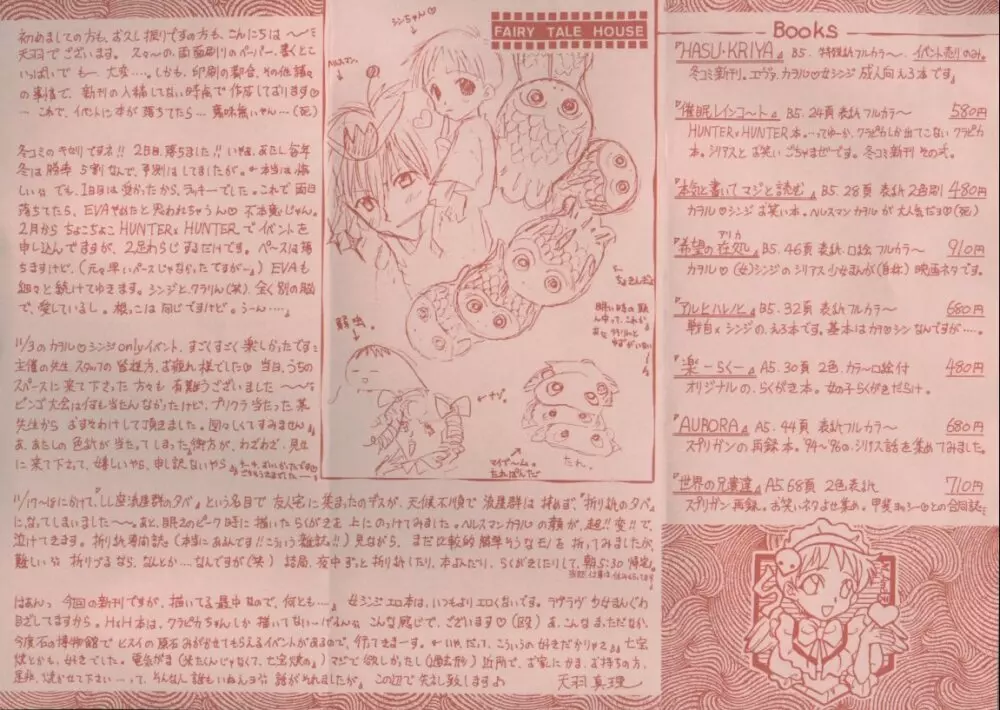 初めましての方も、お久し振りですの方も、こんにちは〜〜
天羽でございます。スゥ〜の、両面刷りのペーパー、書くとこ
いっぱいで も〜 大変…。しかも、印刷の都合、その他諸々
の事情で、新刊の入稿してない時点で作成しております♡
… これで、イベントに本が落ちてたら… 意味無いやん…(死)
冬コミのキセツですネ!! 2日目、勝ちました!!
冬は勝率 5割なんで、予測はしてましたが。
でも、1日目は受かったから、ラッキーでした。これで 両日
落ちてたら、EVAやめたと思われちゃうん♡
2月から ちょこちょこ HUNTER×HUNTER で イベントを
申し込んでますが、2足わらじするだけです。ペースは落
ちますけど、(元々早いペースじゃなかったですが〜。)EVAも
細々と続けてゆきます。シンジとクラりん(笑) 全く別の脳
で、愛しているし。根っこは同じですけど。うーん…。
11/3のカヲル♡シンジonlyイベント、すごくすごく 楽しかったです
主催の先生、スタッフの皆様方、お疲れ様でした♡ 当日、うちの
スペースに来て下さった方々も 有難うございました〜〜
ビンゴ大会は何も当たんなかったけど、プリクラ当たった某
先生から おすそわけして頂きました。図々しくてすみません。
あ、あたしの色紙が当たってしまった御方が、わざわざ、見せ
に来て下さって、嬉しいやら、申し訳ないやら
11/17〜18にかけて、『しし座流星群の夕べ』という名目で 友人宅に集まったのデスが、天候不順で 流星群は拝めず、『折り紙の夕べ』
になってしまいました〜〜。あと、眠さのピーク時に描いたらくがきを 上にのっけてみました。ヘルスマンカヲルの顔が、超!!変!!で、
泣けてきます。折り紙専門誌。(本当にあるんです!!こういう雑誌。!!) 見ながら、まだ比較的簡単そうなモノを折ってみましたが、
難しい 折りづるなら、なんとか…。なんですが(笑) 結局、夜中ずっと折り紙したり、本よんだり、らくがきしたりして、朝5:30 帰宅。
はあんっ 今回の新刊ですが、描いてる最中なので、何とも…。女シンジエロ本は、いつもよりエロくないです。ラブラヴ 少女まんがを
目ざしてますから。H×H本は、クラピカちゃんしか 描いてない こんな感じで、ございます♡(殴) あ、こんなまっただなか、
今度石の博物館で ヒスイの原石みがかせてもらえるイベントがあるので、行ってきま〜す。←いや、だって、こういうの好きだかりさぁ。七宝
焼とかも、好きでした。電気がま マジで欲しかったし(過去形) 近所で、お家にかま、お持ちの方、
是非、焼かせて下さい…って、そんな人誰もいねんヨ 話がそれましたが、この辺で失礼致します♪ 天羽真理
シンちゃん
ヘルスマン
弱虫。
←ナゾ。
マイブーム。
たれぱんだ
たれ。
FAIRY TALE HOUSE
Books
『HASU・KRIYA』 B5. 特殊紙フルカラー イベント売りのみ。
冬コミ新刊。エヴァ、カヲル♡女シンジ 成人向えろ本です。
『催眠レインコート』 B5. 24頁 表紙フルカラー 580円
HUNTER×HUNTER本。…ってゆーか、クラピカしか出てこない クラピカ
本。シリアスと お笑い ごちゃまぜです。冬コミ新刊 その弐。
『本気と書いて マジと読む』 B5. 28頁 表紙 2色刷 480円
カヲル♡シンジ お笑い本。ヘルスマン カヲル が 大人気だヨ♡(死)
『希望の在処』 アリカ B5. 46頁 表紙・口絵 フルカラー 910円
カヲル♡(女)シンジの シリアス少女まんが(自虐) 映画ネタです。
『アルヒハレノヒ』 B5. 32頁 表紙フルカラー 680円
戦自×シンジの、えろ本です。基本はカヲ♡シン なんですが…。
『楽 –らく–』 A5. 30頁 2色. カラー口絵付 480円
オリジナルの、らくがき本。女の子らくがきだらけ。
『AURORA』 A5. 44頁 表紙フルカラー 680円
スプリガンの再録本。94〜96の、シリアス話を集めてみました。
『世界の兄貴達』 A5 68頁 2色表紙 710円
スプリガン 再録。お笑いネタよせ集め。甲斐 との合同誌